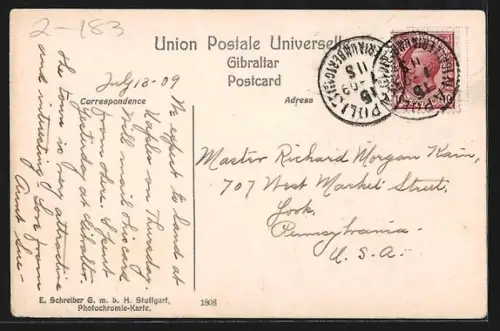 2-183
Union Postale Universelle
Gibraltar
Postcard
Correspondence
Adress
July 13-09
We expect to land at
Naples on Thursday.
Will mail this card
from there. Spent
yesterday at Gibraltar.
The town is very attractive
and interesting - Love from
Aunt Sue
Master Richard Morgan Kain,
707 West Market Street.
York,
Pennsylvania.
U.S.A.
NAPOLI
15
7-09
11 S
E. Schreiber G. m. b. H. Stuttgart,
Photochromie-Karte.
1808